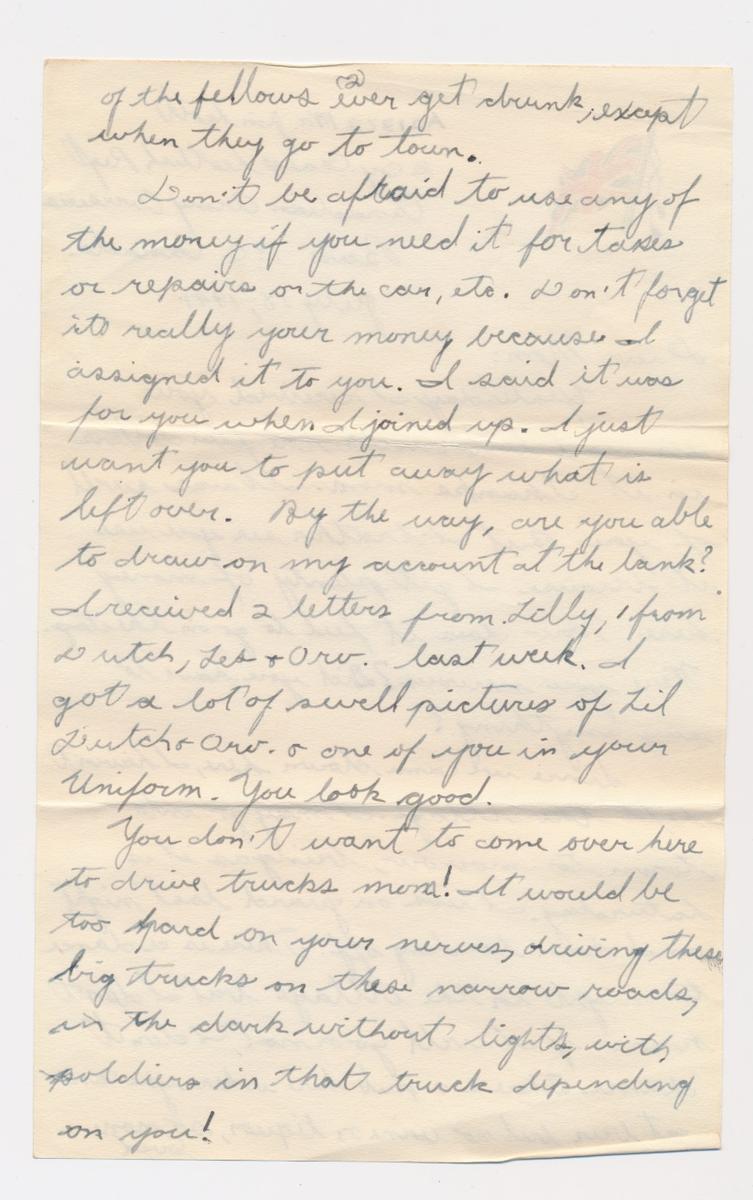 2
of the fellows ever get drunk, except
when they go to town.
Don't be afraid to use any of
the money if you need it for taxes
or repairs or the car, etc. Don't forget
its really your money because I
assigned it to you. I said it was
for you when I joined up. I just
want you to put away what is
left over. By the way, are you able
to draw on my account at the bank?
I received 2 letters from Lilly, 1 from
Dutch, Les & Orv. last week. I
got a lot of swell pictures of Lil
Dutch & Orv. & one of you in your
Uniform. You look good.
You don't want to come over here
to drive trucks mom! It would be
too hard on your nerves, driving these
big trucks on these narrow roads,
in the dark without lights, with
soldiers in that truck depending
on you!